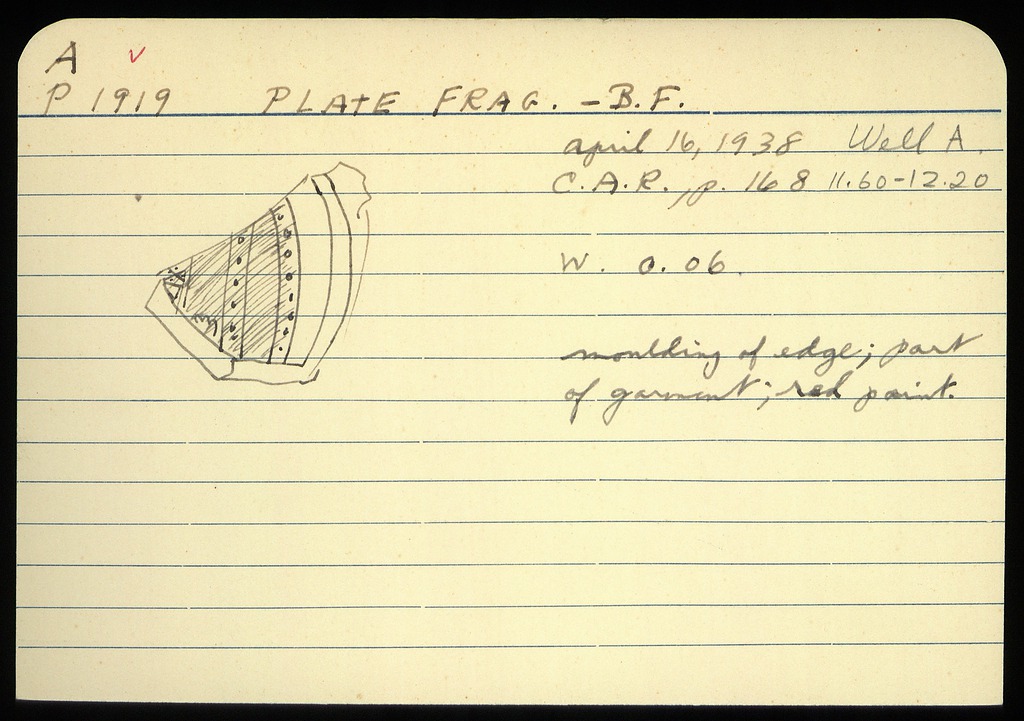 A ✓
P 1919 PLATE FRAG. - B.F.
april 16, 1938 Well A.
C.A.R. p. 168 11.60-12.20
W. 0.06.
moulding of edge; part
of garment; red paint.